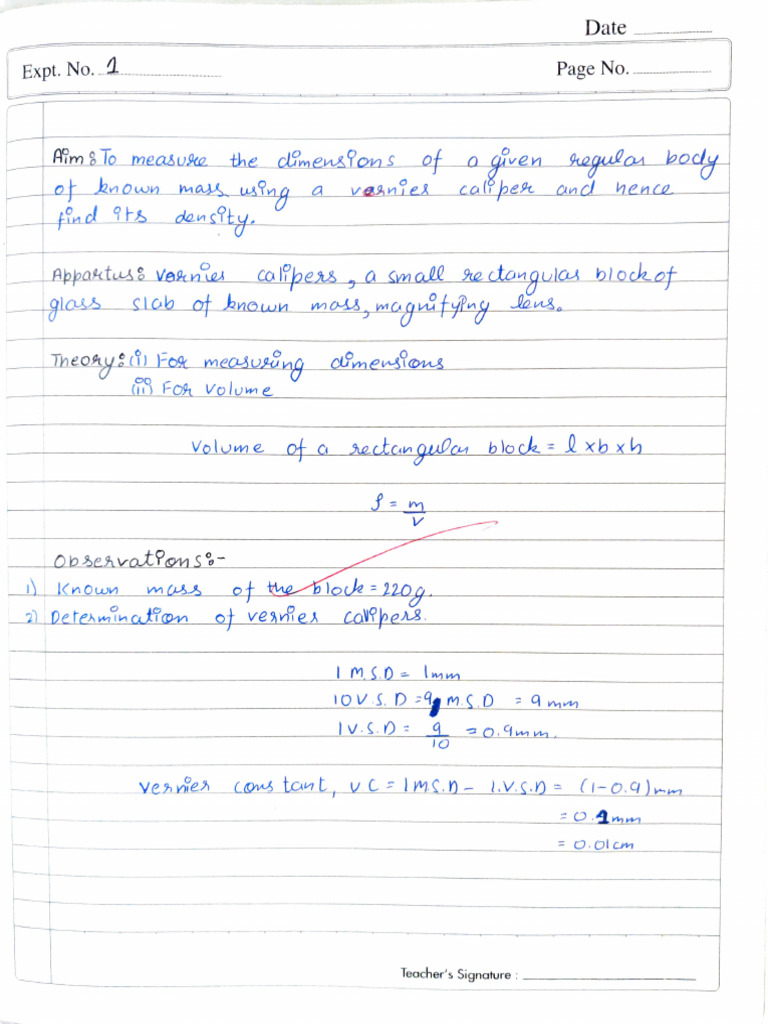 Date
Expt. No. 1
Page No.
Aim: To measure the dimensions of a given regular body
of known mass using a vernier caliper and hence
find its density.
Appartus: vernier calipers, a small rectangular block of
glass slab of known mass, magnifying lens.
Theory: (i) For measuring dimensions
(ii) For volume
Volume of a rectangular block = l × b × h
ρ = m/v
Observations:-
1) Known mass of the block = 220g.
2) Determination of vernier calipers.
1 M.S.D = 1mm
10 V.S.D = 9 M.S.D = 9mm
1 V.S.D = 9/10 = 0.9mm.
Vernier constant, VC = 1 M.S.D - 1.V.S.D = (1-0.9)mm
= 0.1mm
= 0.01cm
Teacher's Signature :